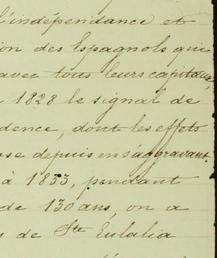 l'indépendance et
ion des Espagnols qui
avec tous leurs capitaux,
1828 le signal de
dence, dont les effets
se depuis en s'aggravant
à 1853, pendant
de 130 ans, on a
de Ste Eulalia